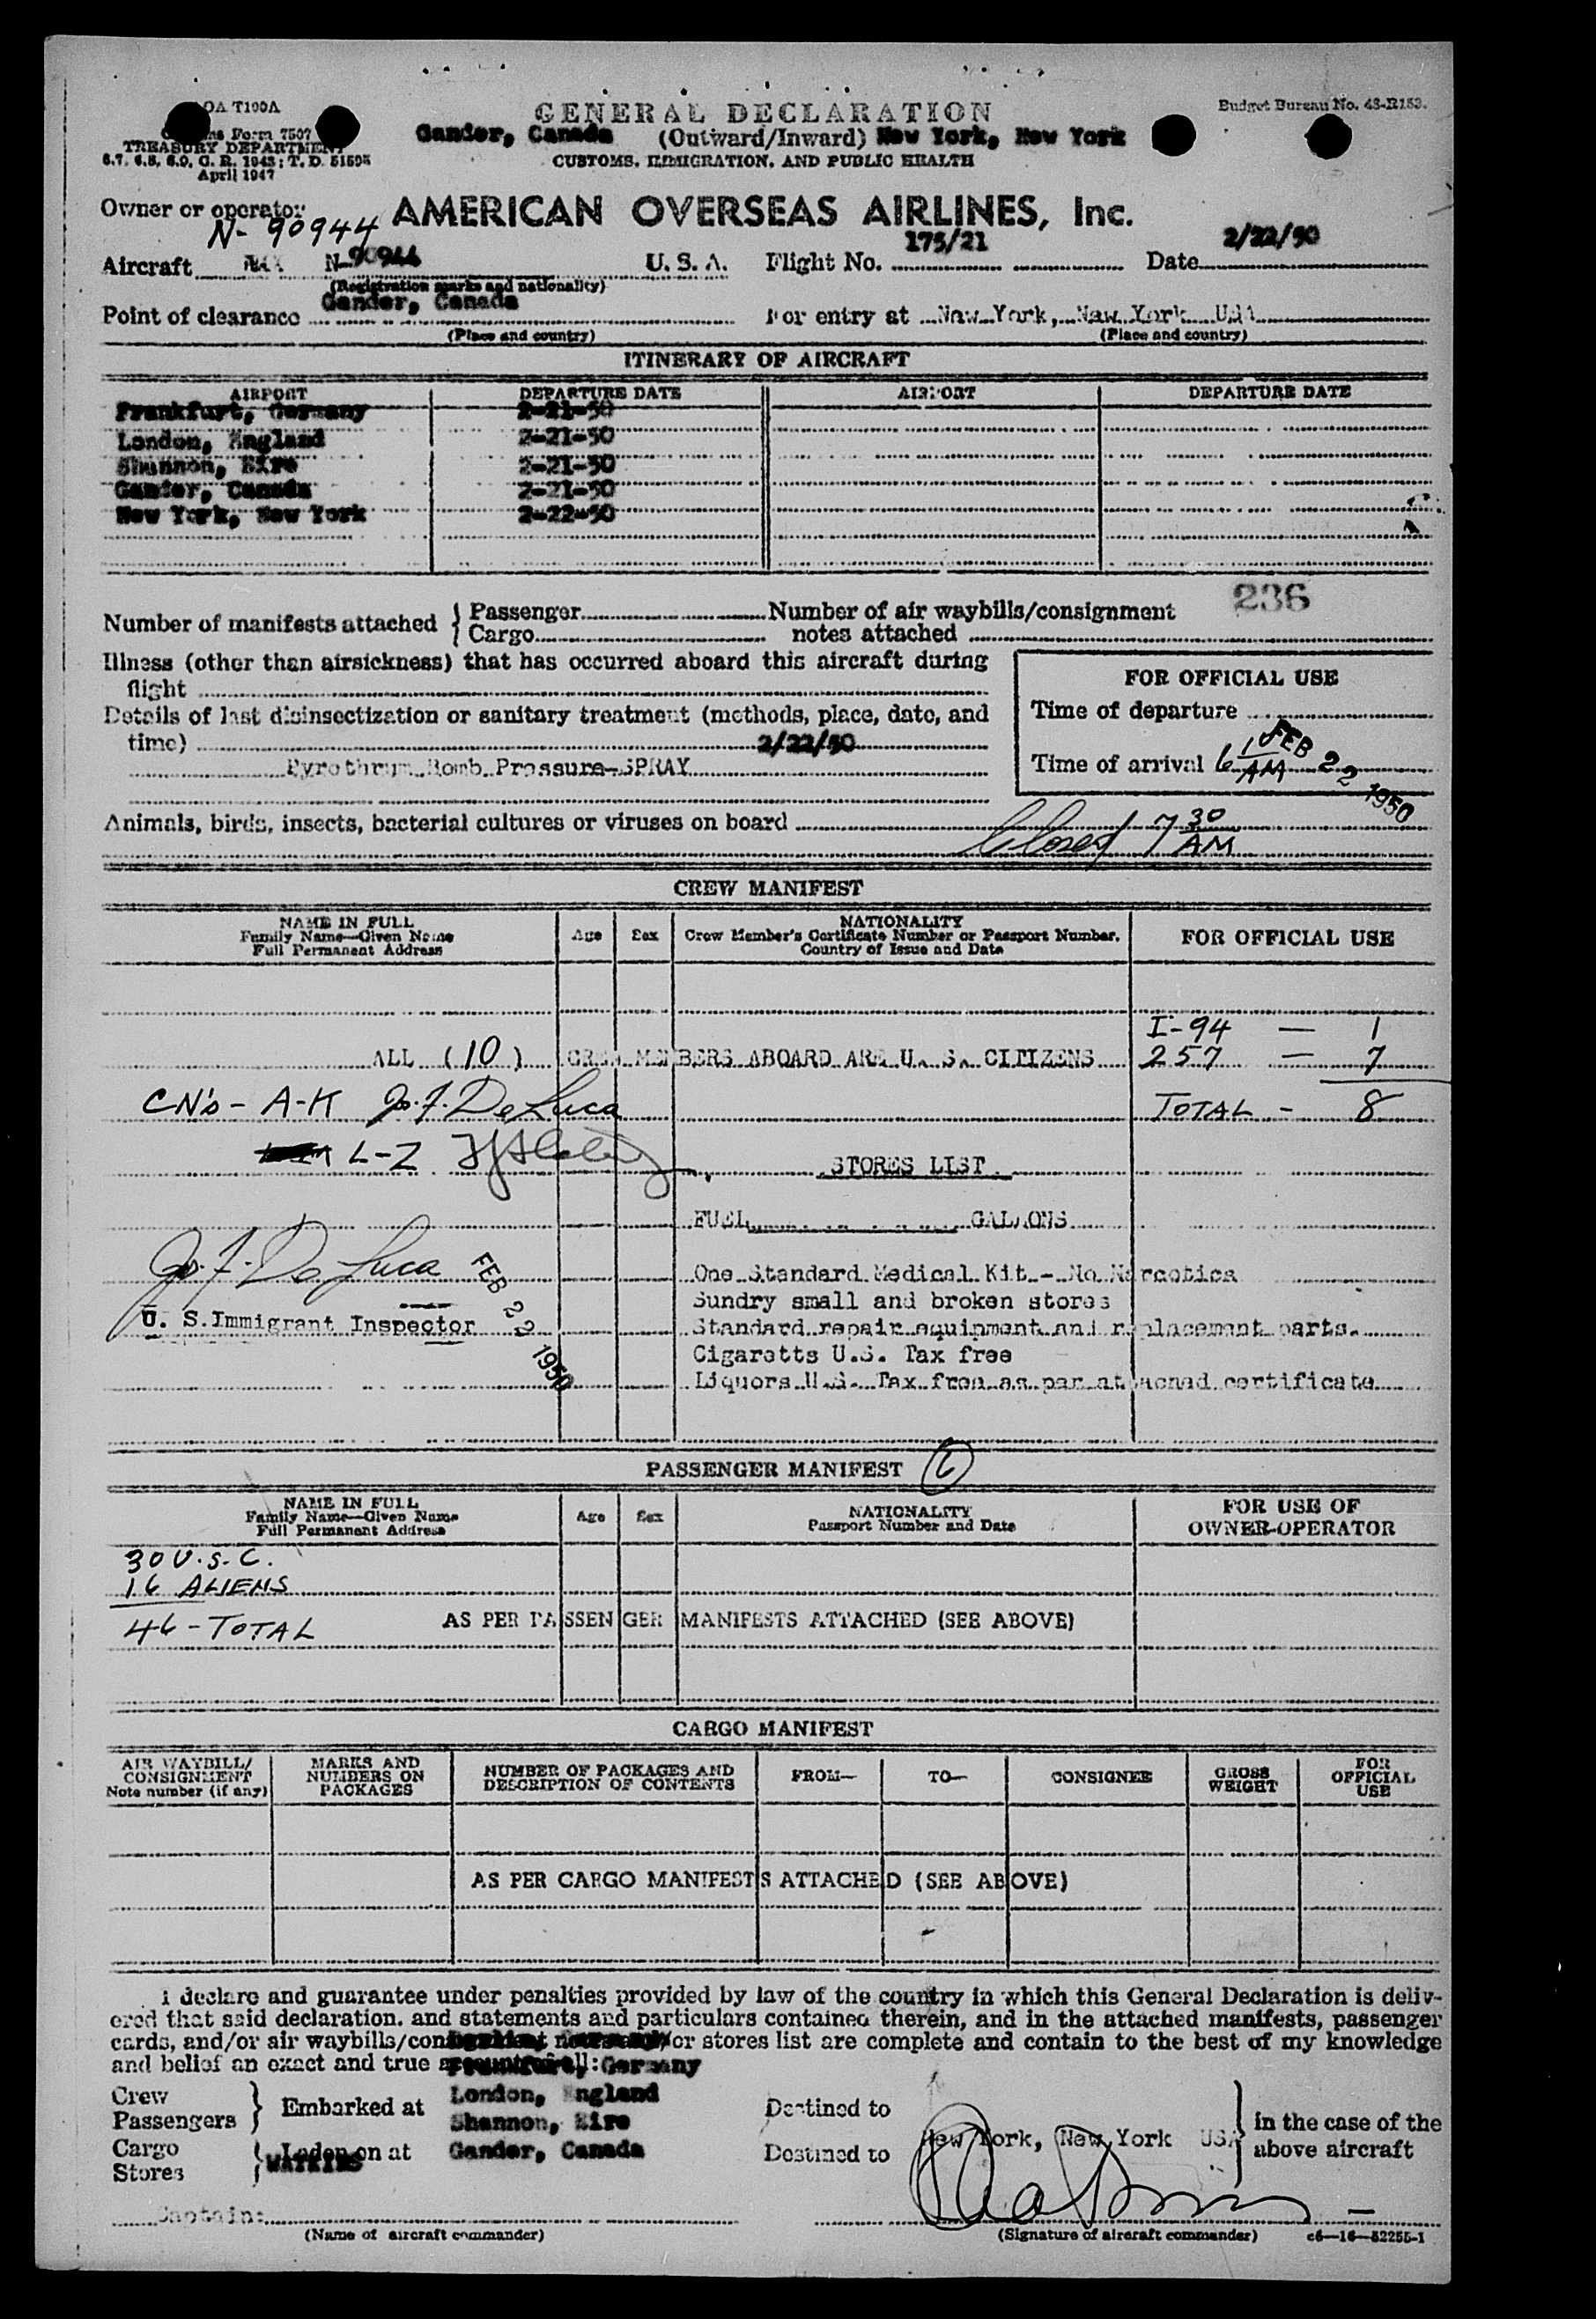 OA T100A
GENERAL DECLARATION
Budget Bureau No. 43-R153.
Customs Form 7507
TREASURY DEPARTMENT
6.7, 6.8, 6.9, C. R. 1943; T. D. 51595
April 1947
Gander, Canada (Outward/Inward) New York, New York
CUSTOMS, IMMIGRATION, AND PUBLIC HEALTH
Owner or operator AMERICAN OVERSEAS AIRLINES, Inc.
N-90944
Aircraft N-90944 U. S. A. Flight No. 175/21 Date 2/22/50
(Registration marks and nationality)
Point of clearance Gander, Canada For entry at New York, New York USA
(Place and country) (Place and country)
ITINERARY OF AIRCRAFT
AIRPORT DEPARTURE DATE AIRPORT DEPARTURE DATE
Frankfurt, Germany 2-21-50
London, England 2-21-50
Shannon, Eire 2-21-50
Gander, Canada 2-21-50
New York, New York 2-22-50
236
Number of manifests attached { Passenger Number of air waybills/consignment
Cargo notes attached
Illness (other than airsickness) that has occurred aboard this aircraft during
flight
Details of last disinsectization or sanitary treatment (methods, place, date, and
time) 2/22/50
Pyrothrum Bomb Pressure-SPRAY
FOR OFFICIAL USE
Time of departure
Time of arrival 6 10 AM FEB 22 1950
Animals, birds, insects, bacterial cultures or viruses on board
Closed 7 30 AM
CREW MANIFEST
NAME IN FULL
Family Name—Given Name
Full Permanent Address
Age Sex
NATIONALITY
Crew Member's Certificate Number or Passport Number,
Country of Issue and Date
FOR OFFICIAL USE
I-94 — 1
ALL (10) CREW MEMBERS ABOARD ARE U. S. CITIZENS 257 — 7
CN's - A-K Jo. F. De Luca TOTAL - 8
L-Z
STORES LIST
FUEL GALLONS
Jo. F. De Luca FEB 22 1950
U. S. Immigrant Inspector
One Standard Medical Kit - No Narcotics
Sundry small and broken stores
Standard repair equipment and replacement parts.
Cigaretts U.S. Tax free
Liquors U.S. Tax free as per attached certificate
PASSENGER MANIFEST 6
NAME IN FULL
Family Name—Given Name
Full Permanent Address
Age Sex
NATIONALITY
Passport Number and Date
FOR USE OF
OWNER-OPERATOR
30 U.S.C.
16 ALIENS
46 - TOTAL AS PER PASSENGER MANIFESTS ATTACHED (SEE ABOVE)
CARGO MANIFEST
AIR WAYBILL/
CONSIGNMENT
Note number (if any)
MARKS AND
NUMBERS ON
PACKAGES
NUMBER OF PACKAGES AND
DESCRIPTION OF CONTENTS
FROM— TO— CONSIGNEE
GROSS
WEIGHT
FOR
OFFICIAL
USE
AS PER CARGO MANIFESTS ATTACHED (SEE ABOVE)
I declare and guarantee under penalties provided by law of the country in which this General Declaration is deliv-
ered that said declaration, and statements and particulars contained therein, and in the attached manifests, passenger
cards, and/or air waybills/consignment notes and/or stores list are complete and contain to the best of my knowledge
and belief an exact and true Frankfurt, Germany
Crew
Passengers } Embarked at London, England
Shannon, Eire
Destined to
Cargo
Stores { Laden on at Gander, Canada
Destined to New York, New York USA } in the case of the
above aircraft
WATKINS
Captain:
(Name of aircraft commander) (Signature of aircraft commander) c6—16—52255-1